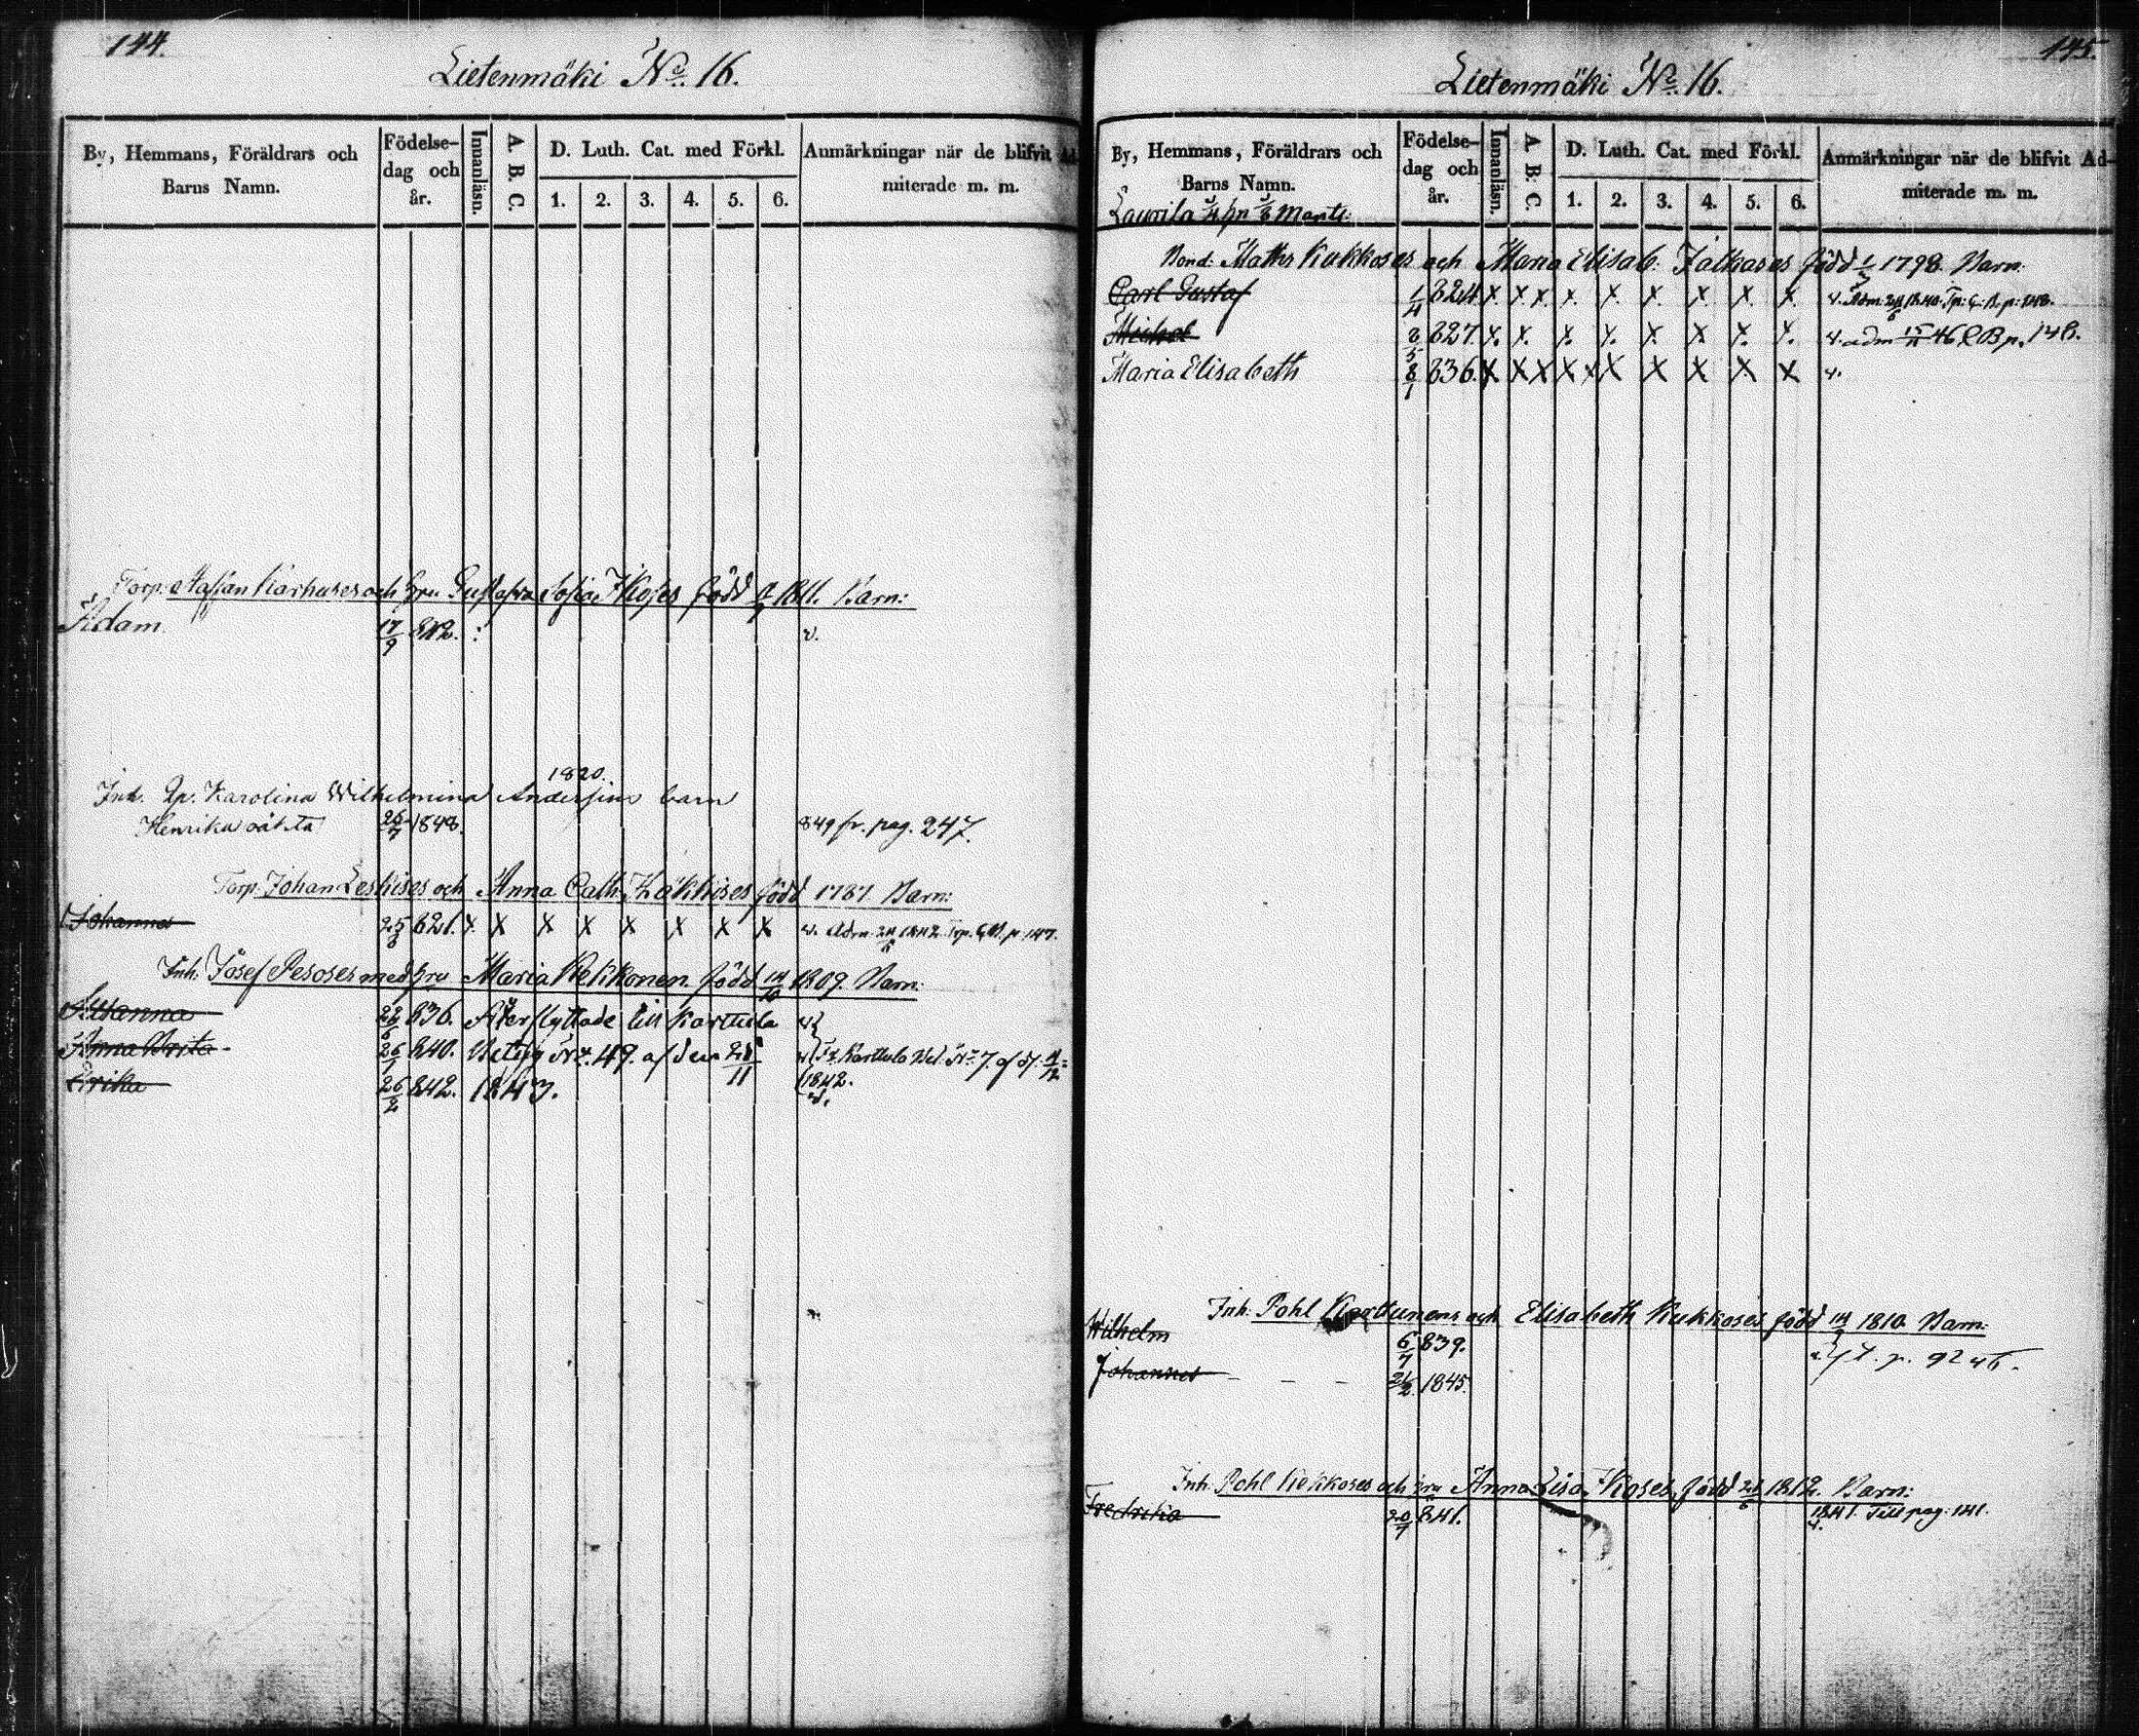 144.
Lietenmäki No. 16.
By, Hemmans, Föräldrars och Barns Namn.
Födelse-dag och år.
Innanläsn.
A. B. C.
D. Luth. Cat. med Förkl.
1. 2. 3. 4. 5. 6.
Anmärkningar när de blifvit Ad-
miterade m. m.
Torp: Staffan Karhuses och hru Gustafva Sofia född 1811. Barn:
Adam 17/9 842. v.
1820.
Inh. Karolina Wilhelmina Andersins barn
Henrika 26/7 1848. 849 fr. pag. 247.
Torp. Johan Leskises och Anna Cath. född 1787 Barn:
Johannes 25/8 821. x x x x x x x x v. Adm. 24/6 1842. Tp. C.B. p: 147.
Inh: Josef Pesoses med hru Maria Kekkonen född 14/10 1809. Barn:
Susanna 22/6 836. Återflyttade till Karttula v
Anna Brita 26/7 840. Betyg No. 49. af den 28/11 v Fr. Karttula Bet. No. 7. af d.
Erika 26/2 842. 1843. 1842.
v.
145.
Lietenmäki No. 16.
By, Hemmans, Föräldrars och Barns Namn.
Födelse-dag och år.
Innanläsn.
A. B. C.
D. Luth. Cat. med Förkl.
1. 2. 3. 4. 5. 6.
Anmärkningar när de blifvit Ad-
miterade m. m.
Laurila Mantl:
Bond: Maths Kukkoses och Maria Elisab. Jalkases född 1798. Barn:
Carl Gustaf 1/4 824 x x x x x x x x x v. Adm. 24/6 1840. Tp: C: B. p: 148.
Michel 8/5 827. x x x x x x x x v. adm 46 C B p. 148.
Maria Elisabeth 8/1 836. x x x x x x x x x x v.
Inh: Pohl Karttunens och Elisabeth Kukkoses född 1810 Barn:
Wilhelm 6/7 839.
p. 92
Johannes 21/2 1845.
Inh: Pohl Kekkoses och hru Anna Lisa född 1812. Barn:
Fredrika 20/7 841. 1841. Till pag: 141.
v.